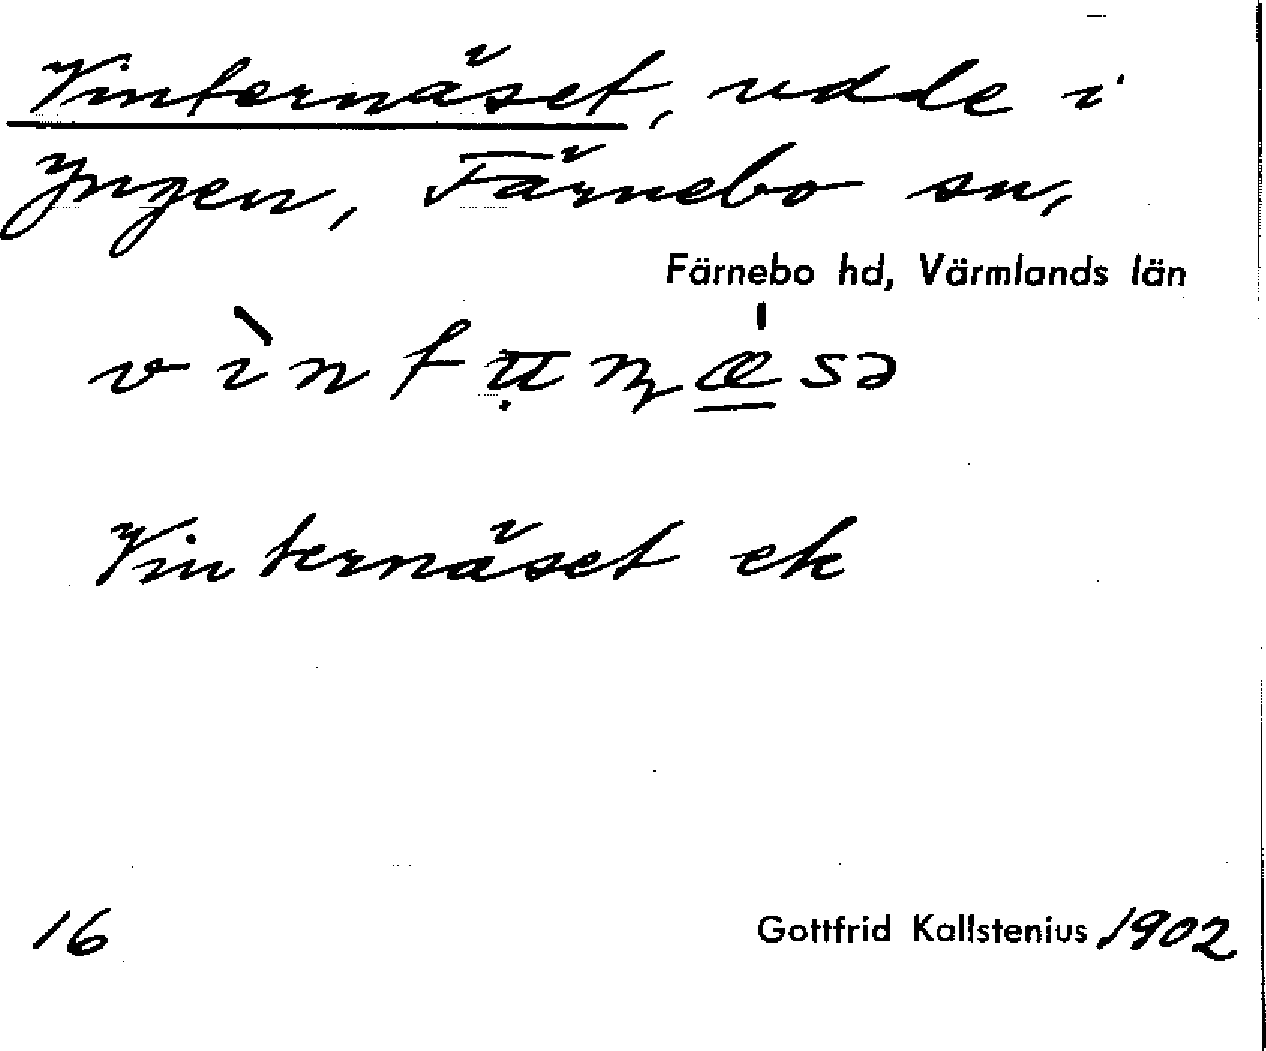 Vinternäset, udde i
Yngen, Färnebo sn,
Färnebo hd, Värmlands län
Vinternäset ek
16
Gottfrid Kallstenius 1902